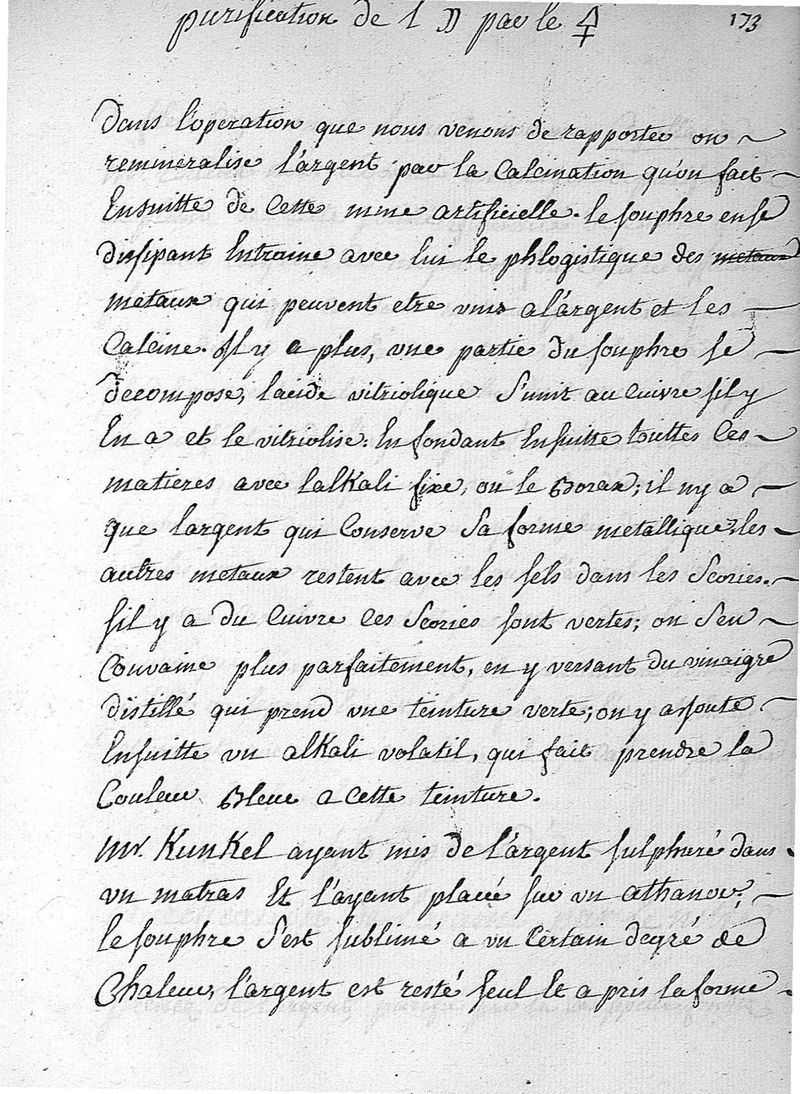 purification de l ☽ par le 🜍
173
Dans l'operation que nous venons de rapporter on ~
remineralise l'argent par la Calcination qu'on fait -
Ensuitte de Cette mine artificielle. le souphre en se
dissipant Entraine avec lui le phlogistique des ~~metaux~~
metaux qui peuvent etre unis a l'argent et les -
Calcine. Il y a plus, une partie du souphre se -
decompose, lacide vitriolique S'unit au Cuivre sil y
En a et le vitriolise. En fondant Ensuitte touttes Ces ~
matieres avec lalKali fixe, ou le Borax; il ny a -
que largent qui Conserve Sa forme metallique. les -
autres metaux restent avec les sels dans les Scories. -
sil y a du Cuivre Ces Scories sont vertes; on S'en -
Convainc plus parfaitement, en y versant du vinaigre
distillé qui prend une teinture verte; on y ajoute -
Ensuitte un alKali volatil, qui fait prendre la
Couleur Bleue a Cette teinture.
Mr. KunKel ayant mis de l'argent sulphuré dans -
un matras Et l'ayant placée sur un athanor, -
le souphre S'est sublimé a un Certain degré de
Chaleur, l'argent est resté seul Et a pris la forme -